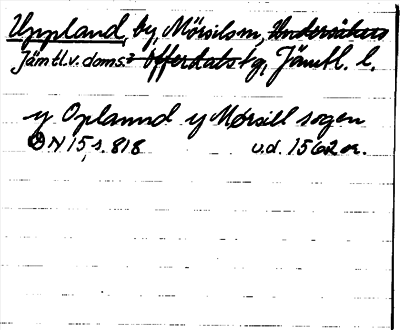 Uppland, by, Mörsils sn, Undersåkers
Jämtl. v. doms. Offerdals tg, Jämtl. l.
y Oplannd y Mørsill sogen
N 15, s. 818 u.d. 1562 or.